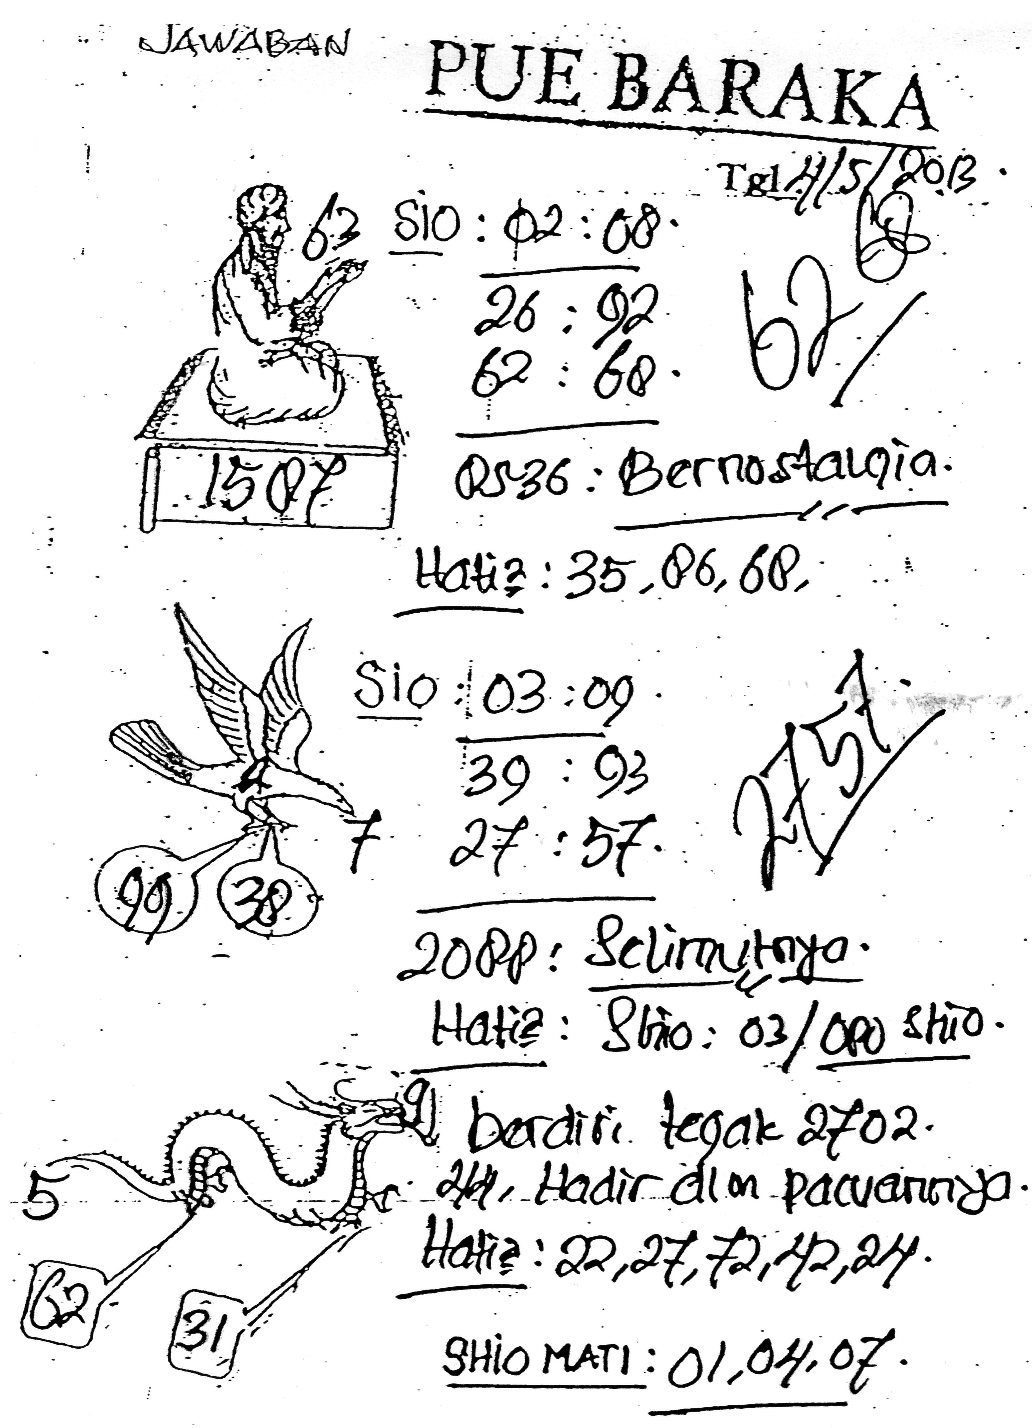 JAWABAN
PUE BARAKA
Tgl 4/5/2013.
63 SIO : 02 : 08.
68
26 : 92
62
62 : 68.
1507
0536 : Bernostalgia.
Hati2 : 35, 06, 68,
SIO : 03 : 09.
39 : 93
2757
4
7
27 : 57.
99 38
2088 : Selimutnya.
Hati2 : Shio : 03/OPO Shio.
9
berdiri tegak 2702.
5
44, Hadir dlm pacuannya.
Hati2 : 22, 27, 72, 42, 24.
62
31
SHIO MATI : 01, 04, 07.